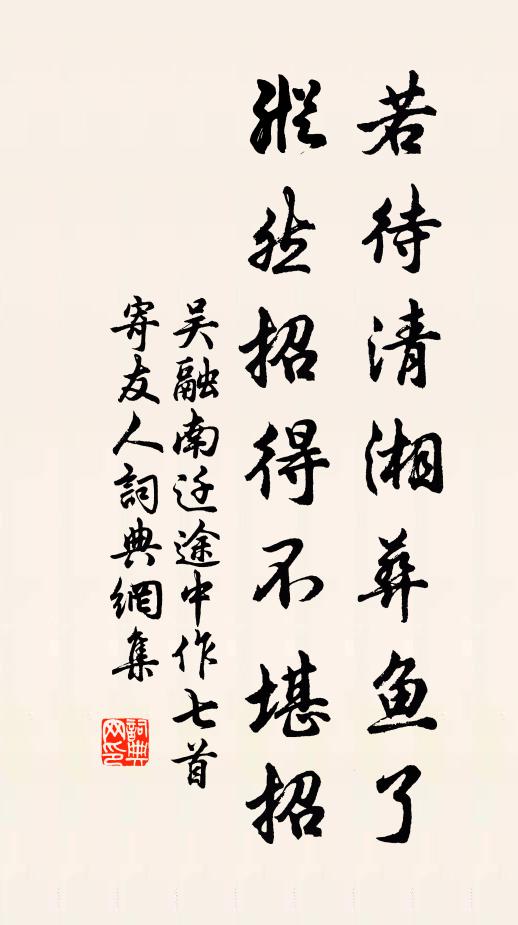 若待清湘葬鱼了
縱然招得不堪招
吴融南迁途中作七首
寄友人詞典網集
詞典网印